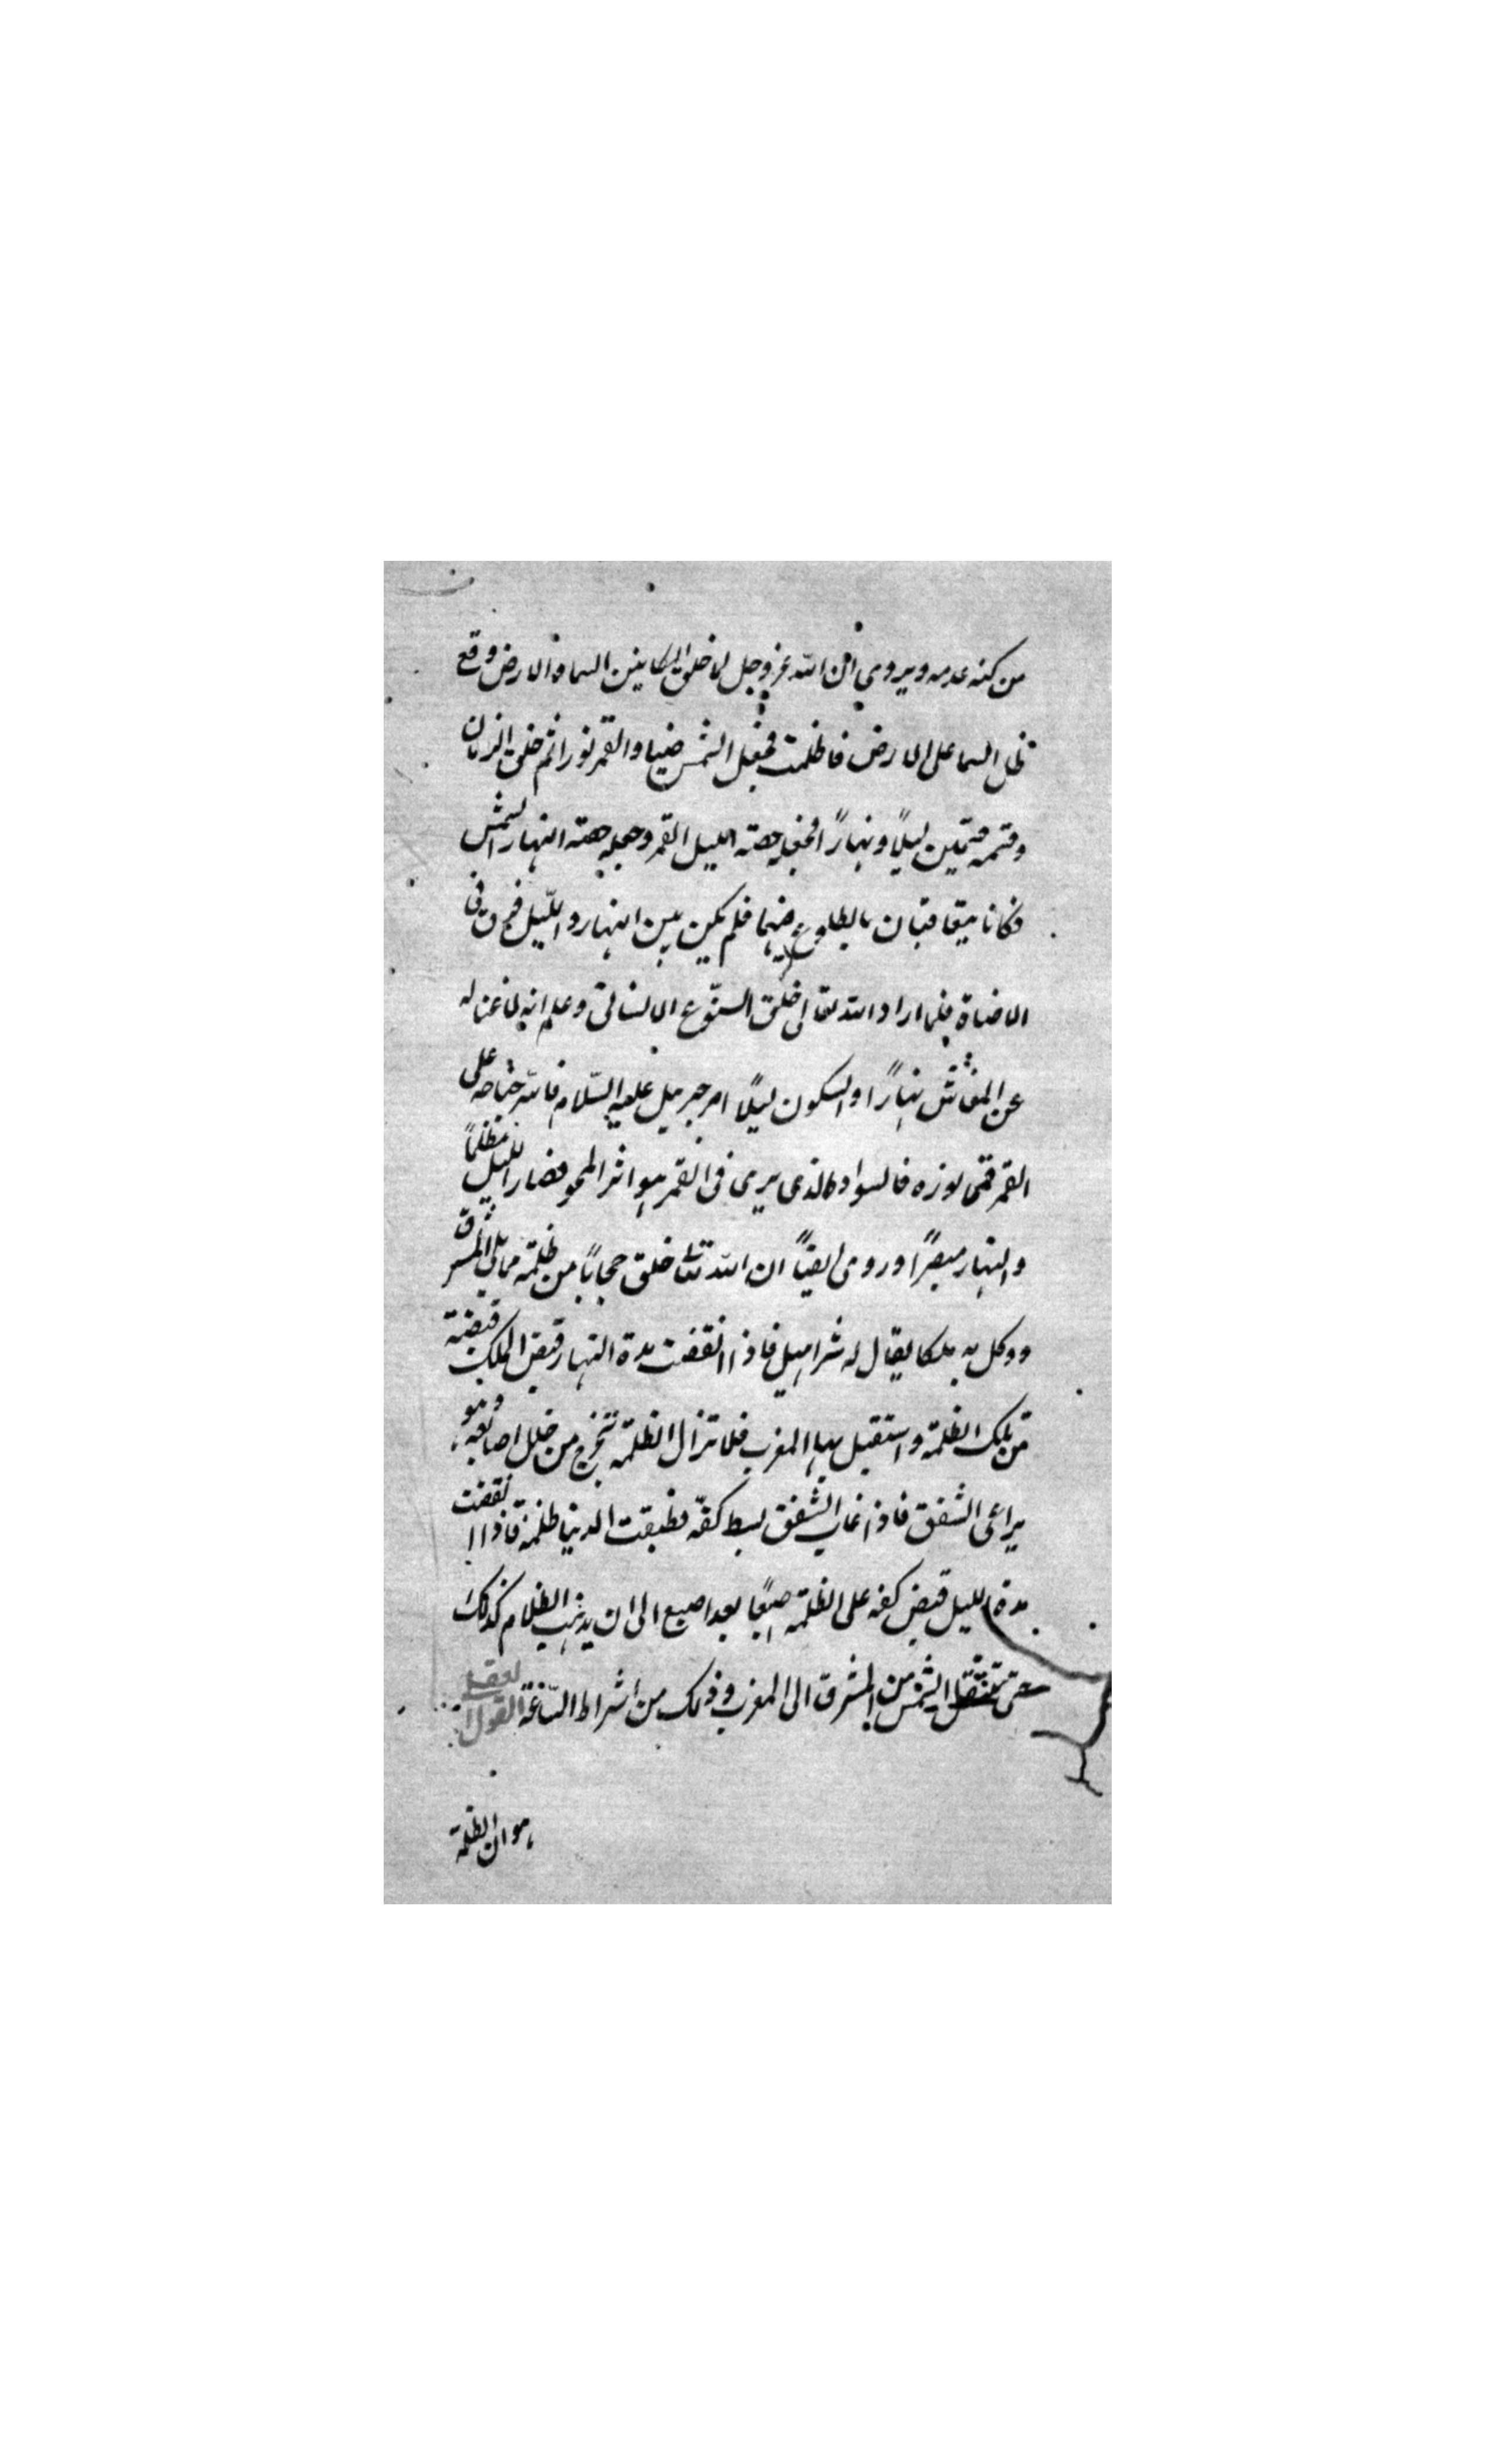 من كنه عدمه ويروى ان الله عز وجل لما خلق الكاينين السما والارض وقع
ظل السما على الارض فاظلمت فجعل الشمس ضيا والقمر نورا ثم خلق الزمان
وقسمه قسمين ليلًا ونهارًا فجعل حصته الليل القمر وجعل حصته النهار الشمس
فكانا يتعاقبان بالطلوع فيهما فلم يكن بين النهار والليل فرق في
الاضاة فلما اراد الله تعالى خلق النوع الانسانى وعلم انه لا غنا له
عن المعاش نهارًا والسكون ليلًا امر جبريل عليه السّلام فامرّ جناحه على
القمر فمحى نوره فالسواد الذى يرى فى القمر هو اثر المحو فصار الليل مظلمًا
والنهار مبصرًا وروى ايضًا ان الله تعالى خلق حجابًا من ظلمة مما يلى المشرق
ووكل به ملكا يقال له شراهيل فاذا انقضت مدة النهار قبض الملك قبضته
من تلك الظلمة واستقبل بها المغرب فلا تزال الظلمة تخرج من خلل اصابعه وهو
يرائى الشفق فاذا غاب الشفق بسط كفّه فطبقت الدنيا ظلمة فاذا انقضت
مدة الليل قبض كفه على الظلمة اصبعًا بعد اصبع الى ان يذهب الظلام كذلك
حتى تنتقل الشمس من المشرق الى المغرب وذلك من اشراط السّاعة القول
هو ان الظلمة